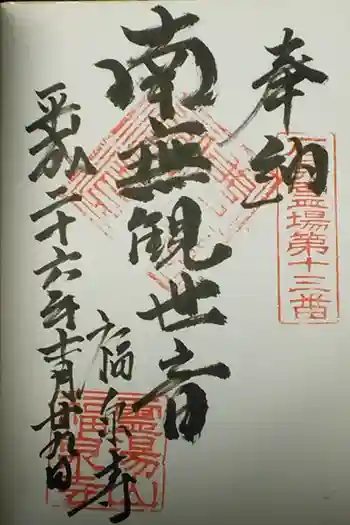 奉納
霊場第十三番
南無観世音
福泉寺
平成二十六年十一月廿九日